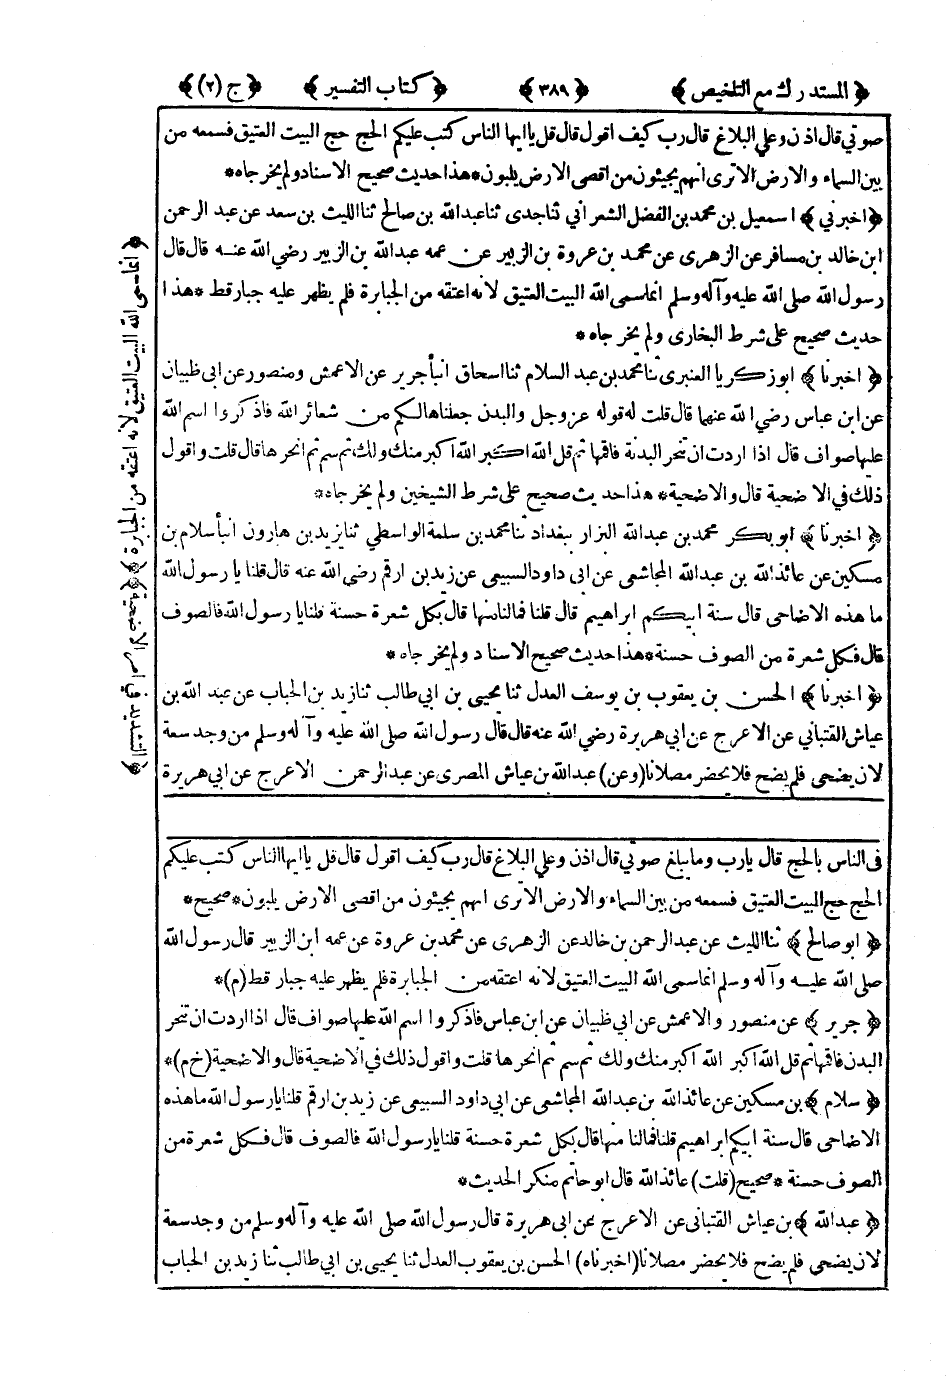 ﴿ المستدرك مع التلخيص ﴾ ﴿ ٣٨٩ ﴾ ﴿ كتاب التفسير ﴾ ﴿ ج (٢) ﴾
صوتي قال اذن وعلي البلاغ قال رب كيف اقول قال قل يا ايها الناس كتب عليكم الحج حج البيت العتيق فسمعه من
بين السماء والارض الا ترى انهم يجيئون من اقصى الارض يلبون * هذا حديث صحيح الاسناد ولم يخرجاه *
﴿ اخبرني ﴾ اسمعيل بن محمد بن الفضل الشعراني ثنا جدى ثنا عبد الله بن صالح ثنا الليث بن سعد عن عبد الرحمن
ابن خالد بن مسافر عن الزهرى عن محمد بن عروة بن الزبير عن عمه عبد الله بن الزبير رضي الله عنه قال قال
رسول الله صلى الله عليه وآله وسلم انما سمى الله البيت العتيق لانه اعتقه من الجبابرة فلم يظهر عليه جبار قط * هذا
حديث صحيح على شرط البخارى ولم يخرجاه *
﴿ اخبرنا ﴾ ابو زكريا العنبرى ثنا محمد بن عبد السلام ثنا اسحاق انبأ جرير عن الاعمش ومنصور عن ابى ظبيان
عن ابن عباس رضي الله عنهما قال قلت له قوله عز وجل والبدن جعلناها لكم من شعائر الله فاذكروا اسم الله
عليها صواف قال اذا اردت ان تنحر البدنة فاقمها ثم قل الله اكبر الله اكبر منك ولك ثم سم ثم انحرها قال قلت واقول
ذلك في الاضحية قال والاضحية * هذا حديث صحيح على شرط الشيخين ولم يخرجاه *
﴿ اخبرنا ﴾ ابو بكر محمد بن عبد الله البزار ببغداد ثنا محمد بن سلمة الواسطي ثنا يزيد بن هارون انبأ سلام بن
مسكين عن عائذ الله بن عبد الله المجاشعى عن ابى داود السبيعى عن زيد بن ارقم رضي الله عنه قال قلنا يا رسول الله
ما هذه الاضاحى قال سنة ابيكم ابراهيم قال قلنا فما لنا منها قال بكل شعرة حسنة قلنا يا رسول الله فالصوف
قال فكل شعرة من الصوف حسنة * هذا حديث صحيح الاسناد ولم يخرجاه *
﴿ اخبرنا ﴾ الحسن بن يعقوب بن يوسف العدل ثنا يحيى بن ابي طالب ثنا زيد بن الحباب عن عبد الله بن
عياش القتباني عن الاعرج عن ابي هريرة رضي الله عنه قال قال رسول الله صلى الله عليه وآله وسلم من وجد سعة
لان يضحى فلم يضح فلا يحضر مصلانا (وعن) عبد الله بن عياش المصرى عن عبد الرحمن الاعرج عن ابي هريرة
فى الناس بالحج قال يا رب وما يبلغ صوتي قال اذن وعلي البلاغ قال رب كيف اقول قال قل يا ايها الناس كتب عليكم
الحج حج البيت العتيق فسمعه من بين السماء والارض الا ترى انهم يجيئون من اقصى الارض يلبون * صحيح *
﴿ ابو صالح ﴾ ثنا الليث عن عبد الرحمن بن خالد عن الزهرى عن محمد بن عروة عن عمه ابن الزبير قال رسول الله
صلى الله عليه وآله وسلم انما سمى الله البيت العتيق لانه اعتقه من الجبابرة فلم يظهر عليه جبار قط (م) *
﴿ جرير ﴾ عن منصور والاعمش عن ابي ظبيان عن ابن عباس فاذكروا اسم الله عليها صواف قال اذا اردت ان تنحر
البدن فاقمها ثم قل الله اكبر الله اكبر منك ولك ثم سم ثم انحرها قلت واقول ذلك في الاضحية قال والاضحية (خ م) *
﴿ سلام ﴾ بن مسكين عن عائذ الله بن عبد الله المجاشعى عن ابى داود السبيعى عن زيد بن ارقم قلنا يا رسول الله ما هذه
الاضاحى قال سنة ابيكم ابراهيم قلنا فما لنا منها قال بكل شعرة حسنة قلنا يا رسول الله فالصوف قال فكل شعرة من
الصوف حسنة * صحيح (قلت) عائذ الله قال ابو حاتم منكر الحديث *
﴿ عبد الله ﴾ بن عياش القتبانى عن الاعرج عن ابى هريرة قال رسول الله صلى الله عليه وآله وسلم من وجد سعة
لان يضحى فلم يضح فلا يحضر مصلانا (اخبرناه) الحسن بن يعقوب العدل ثنا يحيى بن ابى طالب ثنا زيد بن الحباب
﴿ انما سمى الله البيت العتيق لانه اعتقه من الجبابرة ﴾ ﴿ التشديد في امر الاضحية ﴾